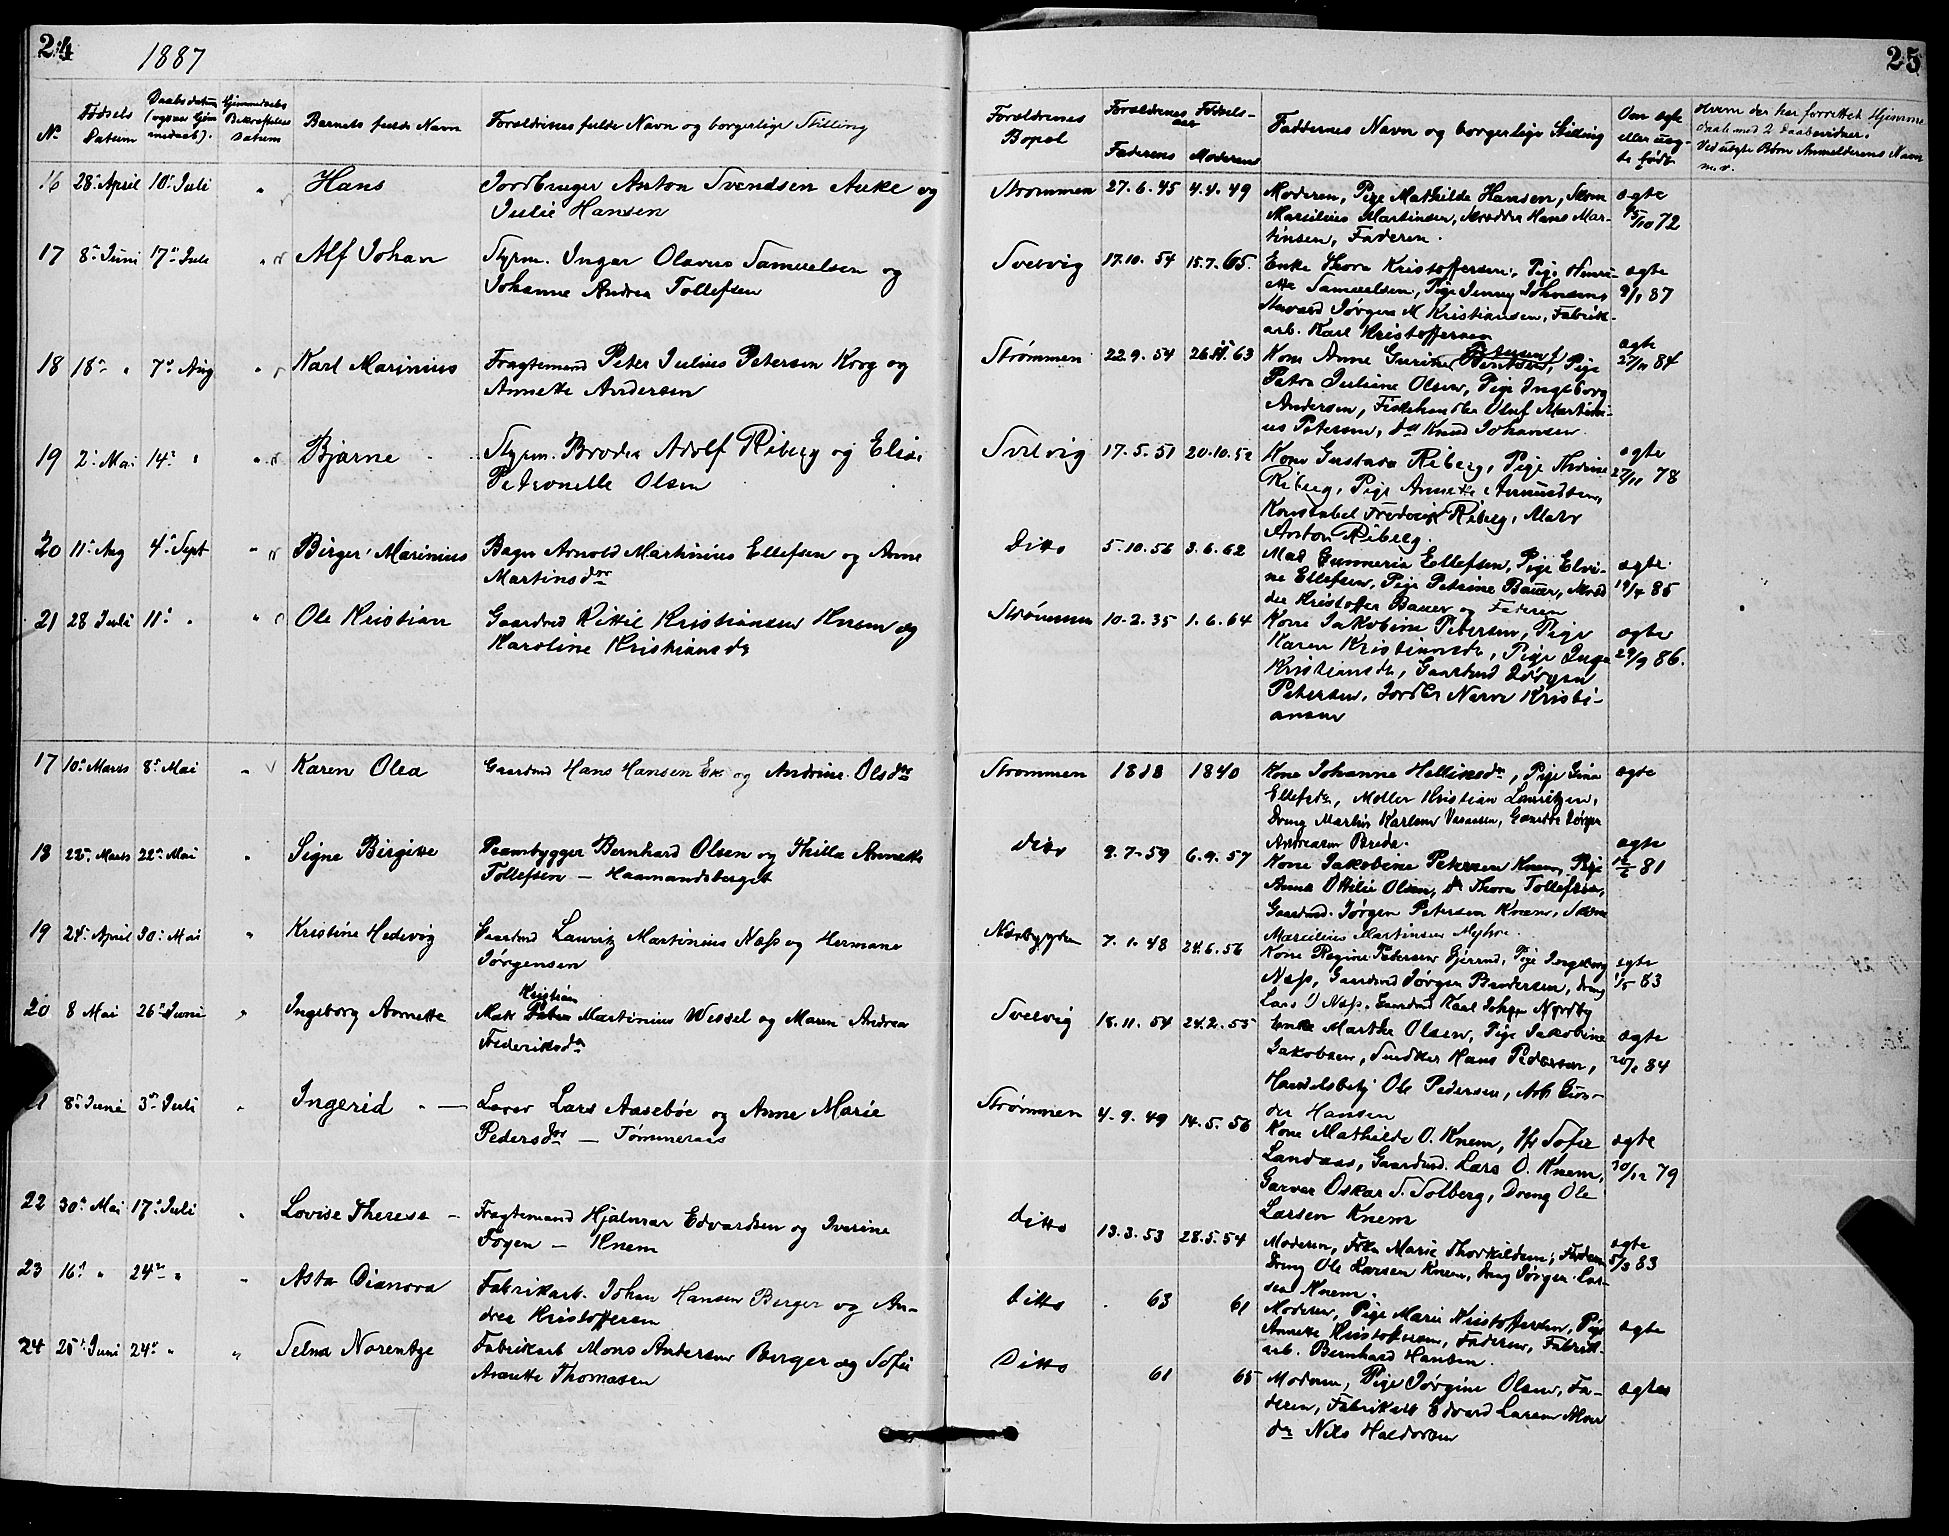 24
1887
25
No
Fødsels Datum
Daabsdatum (ogsaa Hjemmedaab).
Hjemmedaabs Bekræftelses Datum
Barnets fulde Navn
Forældrenes fulde Navn og borgerlige Stilling
Forældrenes Bopæl
Forældrenes Fødselsaar
Faderens
Moderens
Faddernes Navn og borgerlige Stilling
Om ægte eller uægte født
Hvem der har forrettet Hjemmedaab med 2 Daabsvidner.
Ved uægte Børn Anmelderens Navn m.v.
16 28 April 10 Juli " Hans Jordbruger Anton Svendsen Auke og
Julie Hansen
Strømmen 27.6.45 4.4.49 Moderen, Pige Mathilde Hansen, Skom
Marcilius Martinsen, Skrædder Hans Mar-
tinsen, Faderen.
ægte
72
17 8 Juni 17 Juli " Alf Johan Styrm. Ingar Olaves Samuelsen og
Johanne Andrea Tollefsen
Svelvig 17.10.54 15.7.65. Enke Thora Kristoffersen, Pige Henri-
ette Samuelsen, Pige Jenny Johnsen,
Steward Jørgen M Kristiansen, Fabrik-
arb. Karl Kristoffersen
ægte
9/1 87
18 18 " 7 Aug " Karl Marinius Fragtemand Peter Julius Petersen Krog og
Annette Andersen
Strømmen 22.9.54 63 Kone Anne Petersen, Pige
Petra Juliane Olsen, Pige Ingeborg
Andersen, Fiskehandler Oluf Martini-
us Petersen, do Knud Johansen
ægte
27/11 84
19 2 Mai 14 " " Bjarne Styrm. Broder Adolf Riberg og Elise
Petronelle Olsen
Svelvig 17.5.51 20.10.52 Kone Gustava Riberg, Pige Thrine
Riberg, Pige Annette Amundsen,
Konstabel Frederik Riberg, Matr
Anton Riberg.
ægte
27/11 78
20 11 Aug 4 Sept " Birger Marinius Bager Arnold Martinius Ellefsen og Anne
Martinsdtr
Ditto 5.10.56 3.6.62 Mad Gunneria Ellefsen, Pige Elvi-
ne Ellefsen, Pige Petrine Bauer, Skræd
der Kristoffer Bauer og Faderen
ægte
19/4 85
21 28 Juli 11 " " Ole Kristian Gaardmd Kittil Kristiansen Knem og
Karoline Kristiansdr
Strømmen 10.2.35 1.6.64 Kone Jakobine Petersen, Pige
Karen Kristiansdr, Pige Inga
Kristiansdr, Gaardmd Jørgen
Petersen, Narve Kristi-
ansen
ægte
29/9 86.
17 10 Marts 8 Mai " Karen Olea Gaardmd Hans Hansen Ek og Andrine Olsdtr
Strømmen 1838 1840 Kone Johanne Helliesdr, Pige Gina
Ellefsdr, Møller Kristian Lauritzen,
Dreng Martin Karlsen Gaardbr Jørgen
Andreasen
ægte
18 22 Marts 22 Mai " Signe Birgitte Prambygger Bernhard Olsen og Thilla Annette
Tollefsen — Haamandsberget
Ditto 9.7.59 6.9.57 Kone Jakobine Petersen Knem, Pige
Anna Ottilie Olsen, do Thora Tollefsen,
Gaardmd. Jørgen Petersen Knem, Skom
Marcilius Martinsen
ægte
81
19 24 April 30 Mai " Kristine Hedevig Gaardmd Lauritz Martinius Næss og Hermane
Jørgensen
Nesbygden 7.1.48 24.6.56 Kone Regine Petersen Gjerud, Pige Ingeborg
Næss, Gaardmd Jørgen Berntsen, Dreng
Lars Næss, Gaardmd Karl Johan Nordby
ægte
1/5 83
20 8 Mai 26 Juni " Ingeborg Annette Matr Kristian Martinius Wessel og Maren Andrea
Frederiksdr
Svelvig 18.11.54 24.2.55 Enke Marthe Olsen, Pige Jakobine
Jakobsen, Snedker Hans Pedersen,
Handelsbetj Ole Pedersen, Arb Gun-
der Hansen
ægte
84
21 8 Juni 3 Juli " Ingerid — Lærer Lars Aasebøe og Anne Marie
Pedersdtr — Tømmeraas
Strømmen 4.9.49 14.5.56 Kone Mathilde O. Knem, Sofie
Landaas, Gaardmd. Lars O. Knem,
Garver Oskar S. Solberg, Dreng Ole
Larsen Knem
ægte
30/12 79
22 30 Mai 17 Juli " Lovise Therese — Fragtemand Hjalmar Edvardsen og Iverine
Foyen — Knem
ditto 13.3.53 28.5.54 Moderen, Marie Thorkildsen, Faderen
Dreng Ole Larsen Knem, Dreng Jørgen Lar-
sen Knem.
ægte
5/3 83
23 16 " 24 " " Asta Dianora Fabrikarb. Johan Hansen Berger og An-
drea Kristoffersen
Ditto 63 61 Moderen, Pige Marie Kristoffersen, Pige
Annette Kristoffersen, Faderen, Fabrik-
arb. Bernhard Hansen.
ægte
24 25 Juni 24 " " Selma Norentze Fabrikarb Mons Andersen Berger og Sofie
Annette Thomasen
Ditto 61 65 Moderen, Pige Jørgine Olsen, Fa-
deren, Fabrikarb Edvard Larsen
Nils Haldorsen
ægte